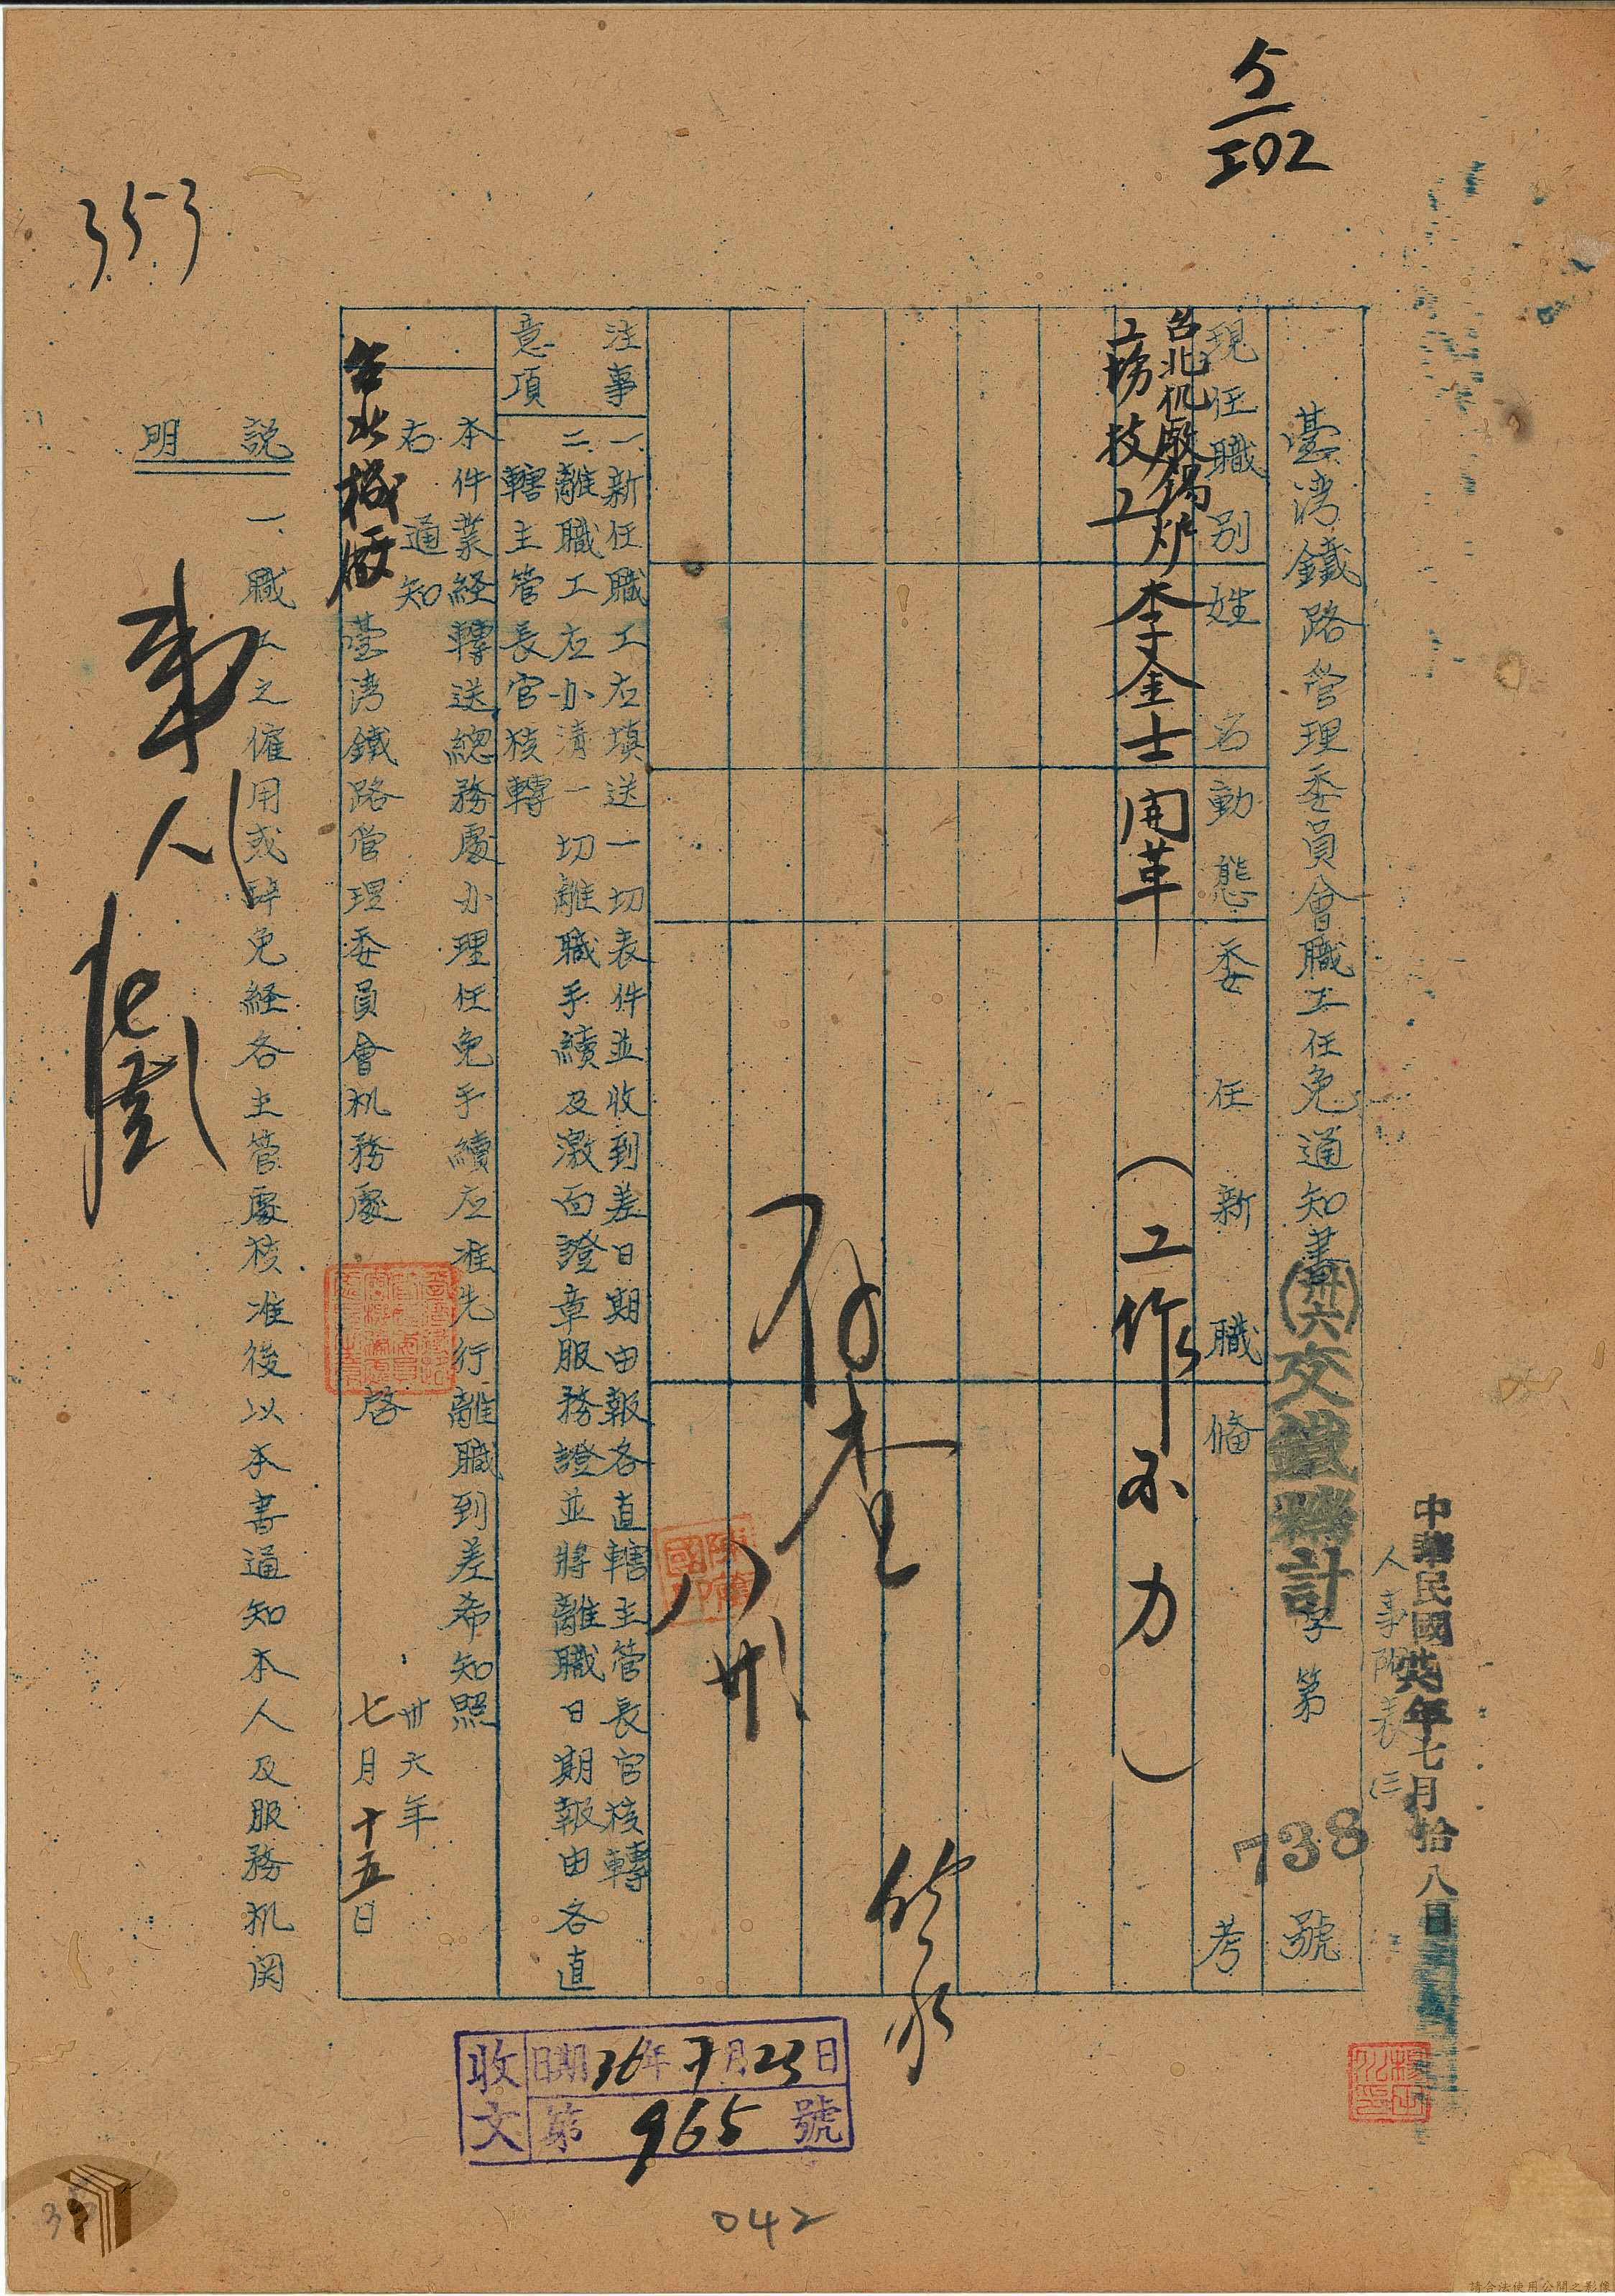 5/502
353
中華民國卅六年七月拾八日
人事附表(三)
臺湾鐵路管理委員會職工任免通知書(卅六)交鐵機計字第738號
現任職別
姓名
動態
委任新職
備考
台北机廠鍋炉
工務技工
李金士
開革
(工作不力)
存查
八
卅
注意事項
一、新任職工应填送一切表件並收到差日期由報各直轄主管長官核轉
二、離職工应办清一切離職手續及激面證章服務證並將離職日期報由各直
轄主管長官核轉
本件業経轉送總務處办理任免手續应准先行離職到差希知照
右通知
台北機廠
臺湾鐵路管理委員會机務處 啓
卅六年
七月十五日
說明
一、職工之僱用或辞免経各主管處核准後以本書通知本人及服務机関
人
收文
日期36年7月23日
第965號
042
請合法使用公開之影像